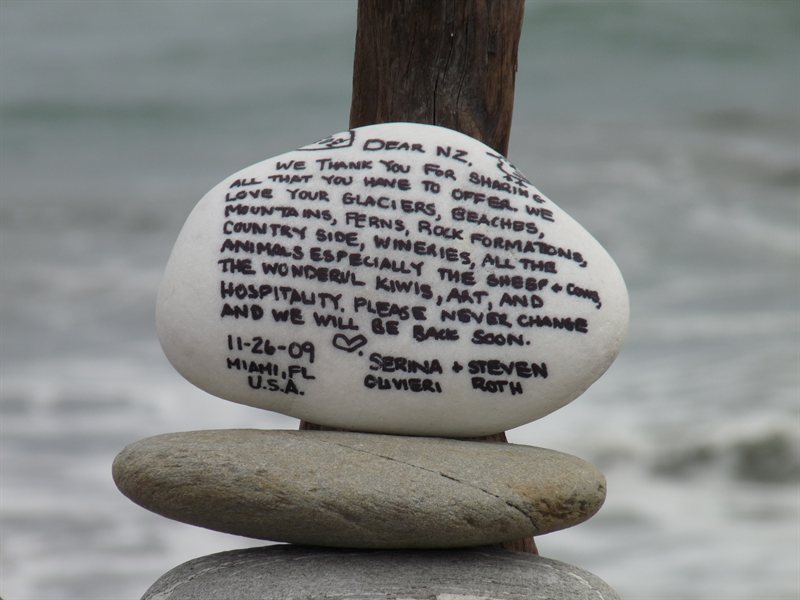 DEAR NZ,
WE THANK YOU FOR SHARING
ALL THAT YOU HAVE TO OFFER. WE
LOVE YOUR GLACIERS, BEACHES,
MOUNTAINS, FERNS, ROCK FORMATIONS,
COUNTRY SIDE, WINERIES, ALL THE
ANIMALS ESPECIALLY THE SHEEP + COWS,
THE WONDERFUL KIWIS, ART, AND
HOSPITALITY. PLEASE NEVER CHANGE
AND WE WILL BE BACK SOON.
11-26-09
MIAMI, FL
U.S.A.
SERINA + STEVEN
OLIVIERI ROTH